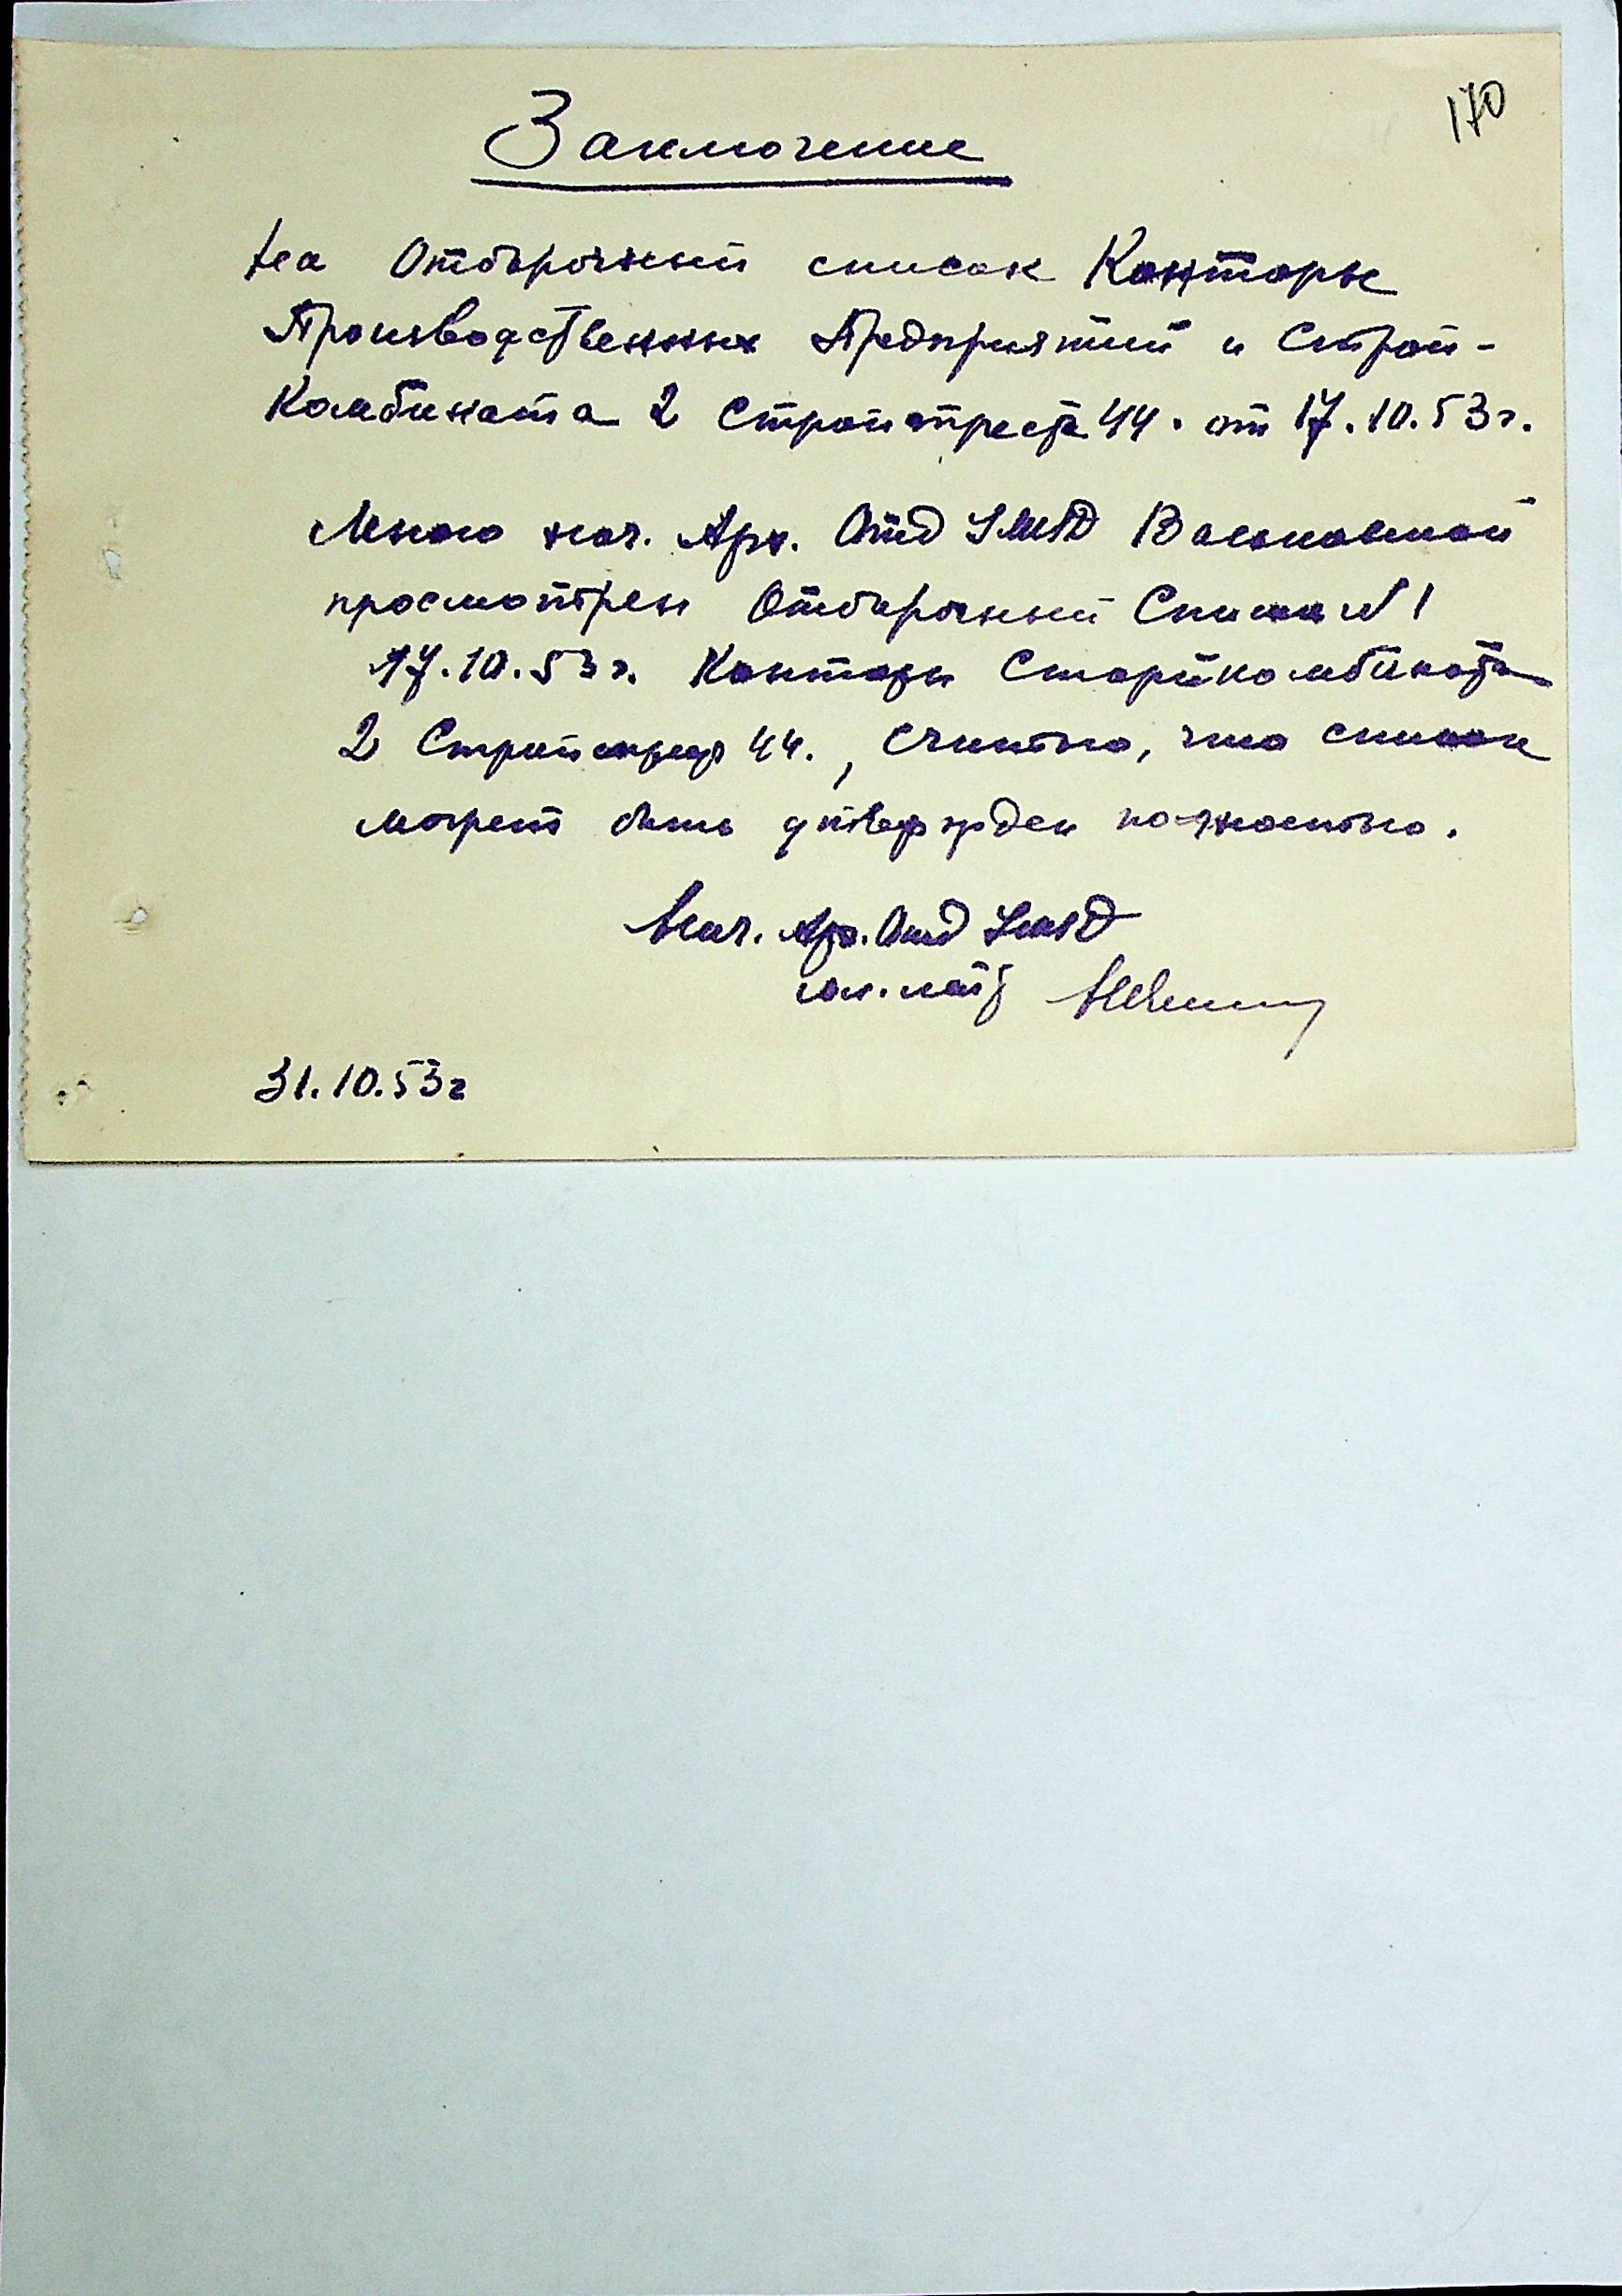 170
Заключение
На Отборочный список Конторы
Производственных Предприятий и Строй-
Комбината 2 Стройтреста 44. от 17.10.53 г.
Мною нач. Арх. Отд
просмотрен Отборочный Список N 1
17.10.53 г. Конторы Сторйкомбината
2 Стройтреста 44., Считаю, что список
может быть утвержден полностью.
Нач. Арх. Отд
31.10.53 г